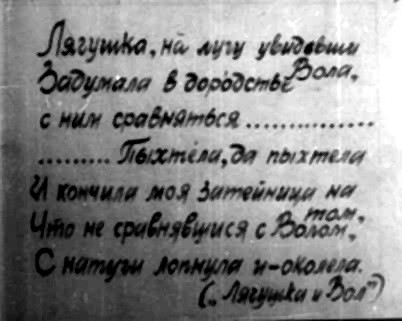 Лягушка, на лугу увидевши
Вола,
Задумала в дородстве
с ним сравняться ................
.......... Пыхтела, да пыхтела
И кончила моя затейница на
том,
Что не сравнявшися с Волом,
С натуги лопнула и-околела.
(„Лягушка и Вол")